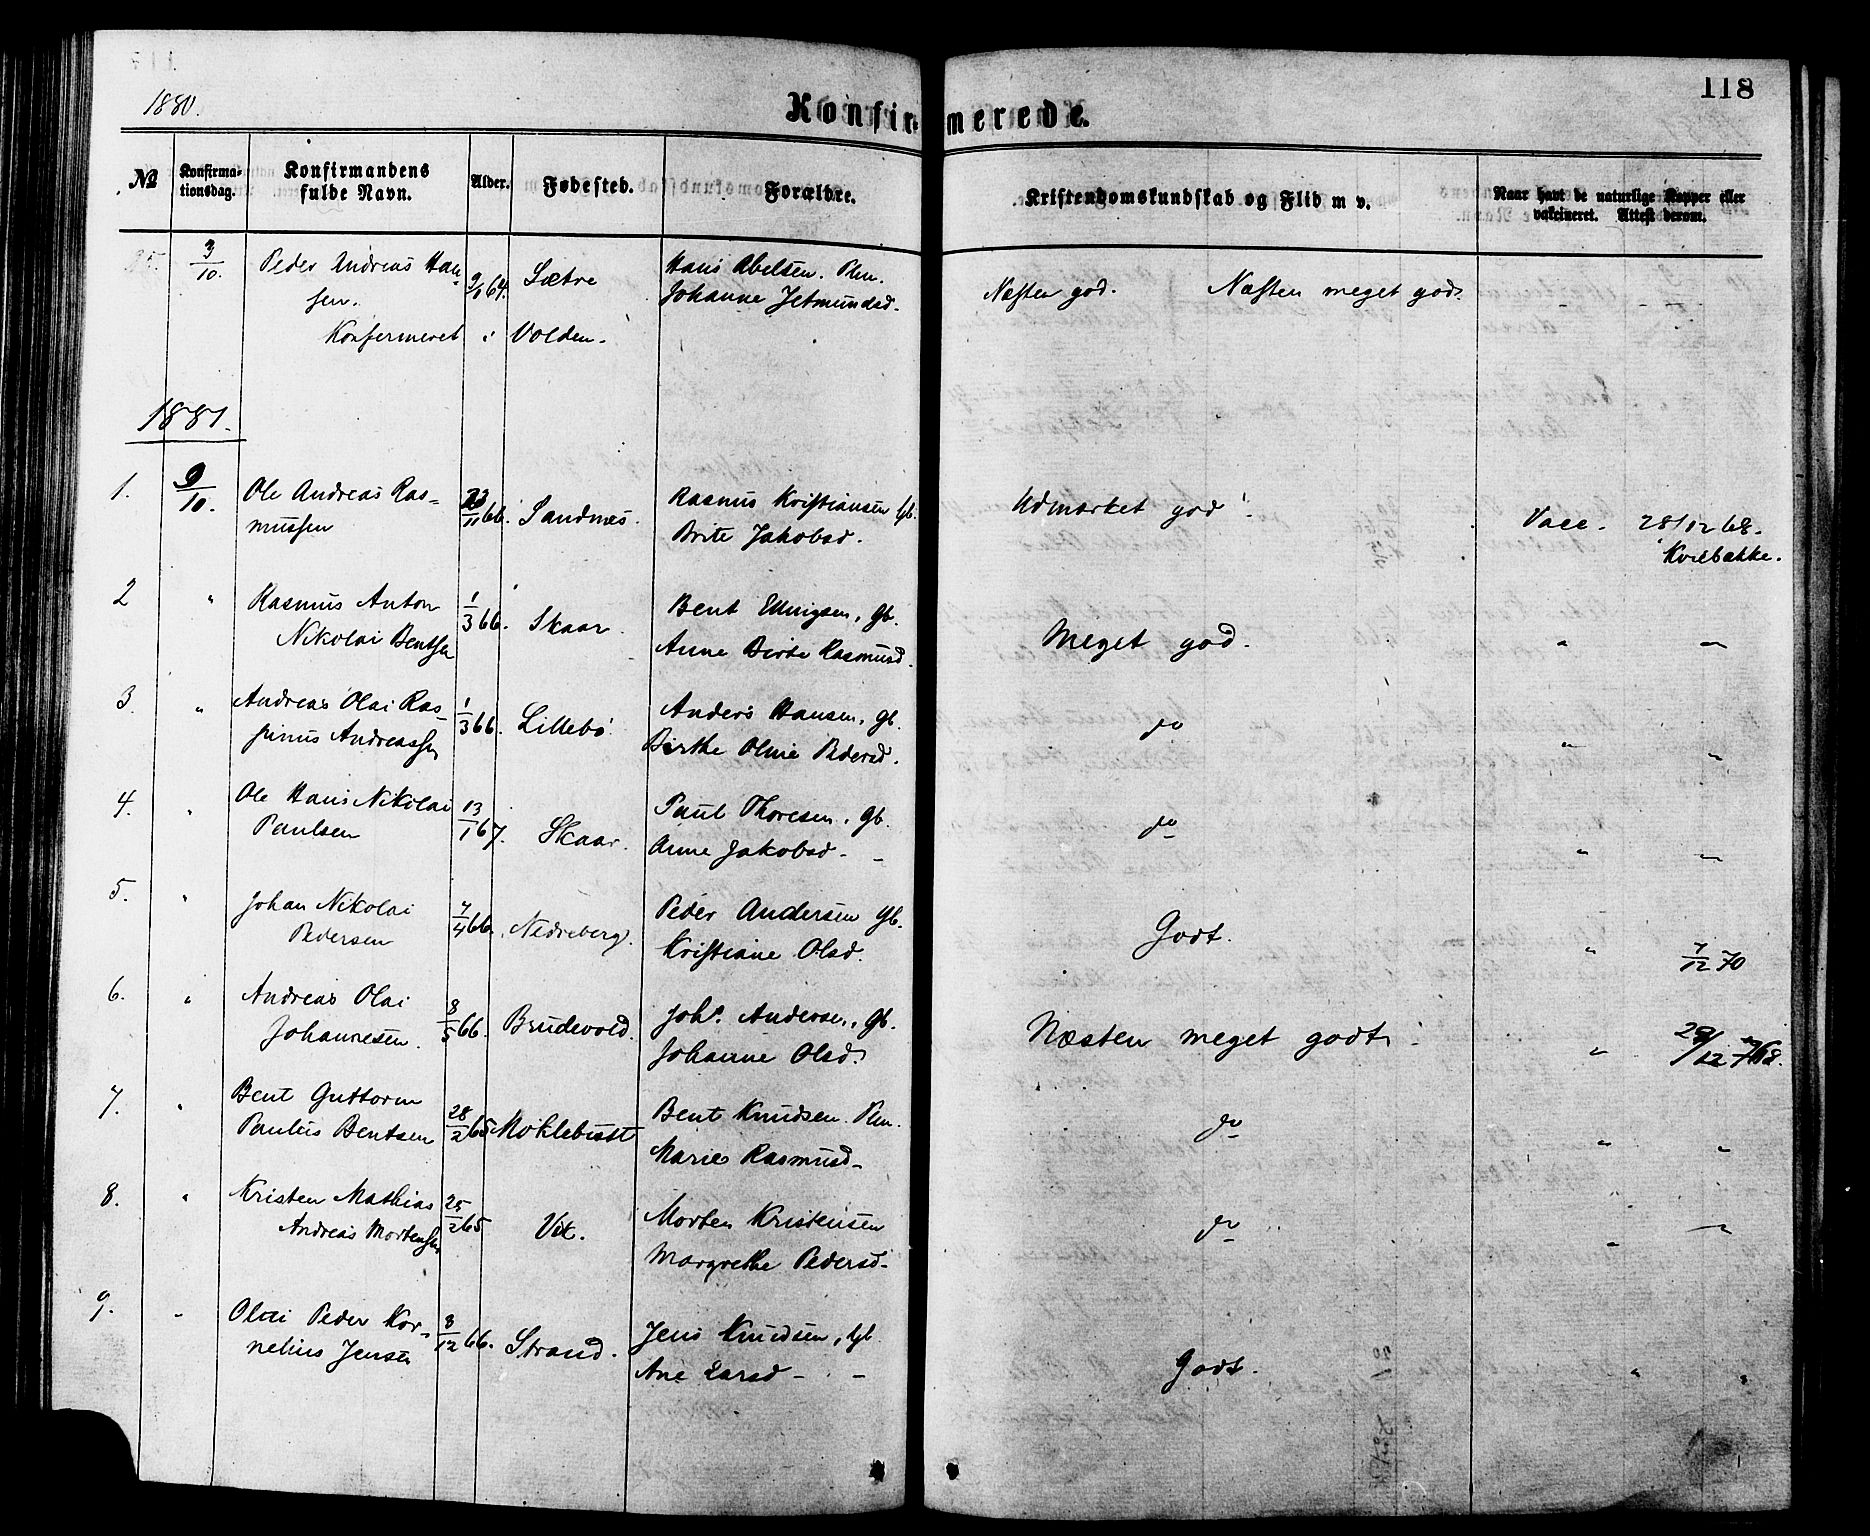 1880.
Konfirmerede.
118
№
Konfirma-
tionsdag.
Konfirmandens
fulde Navn.
Alder.
Fødested.
Forældre.
Kristendomskundskab og Flid m v.
Naar havt de naturlige Kopper eller
vakcineret. Attest derom.
25. 3/10. Peder Andreas Han- 9/1 64. Sætre Hans Abelsen. Plm. Næsten god. Næsten meget god.
sen. Johanne Jetmundsd.
Konfermeret i Volden.
1881.
1. 9/10. Ole Andreas Ras- 23/11 66. Sandnes. Rasmus Kristiansen Gb. Udmærket god. Vacc. 28/12 68.
mussen Brite Jakobsd. Kvilbakke.
2 " Rasmus Anton 1/3 66. Skaar. Bent Ellingsen, Gb. Meget god. " "
Nikolai Bentsen Anne Birte Rasmusd.
3. " Andreas Olai Ras- 1/3 66. Lillebø Anders Hansen, Gb. do " "
sinus Andreassen Birthe Oline Pedersd.
4. " Ole Hans Nikolai 13/1 67. Skaar. Paul Thoresen, Gb. do " "
Paulsen Anne Jakobsd.
5. " Johan Nikolai 7/4 66. Nedreberg. Peder Andersen Gb. Godt. " 7/12 70
Pedersen Kristiane Olsd.
6. " Andreas Olai 8/5 66. Brudevold. Johs. Anderse., Gb. Næsten meget godt. " 29/12 68.
Johannesen. Johanne Olsd.
7. " Bent Guttorm 28/2 65 Moklebust Bent Knudsen. Plm. do " "
Paulus Bentsen Marie Rasmusd.
8. " Kristen Mathias 25/2 65 Vik. Morten Kristensen do " "
Andreas Mortensen Margrethe Pedersd.
9. " Olai Peder Kor- 3/12 66. Strand. Jens Knudsen, Gb. Godt. " "
nelius Jensen Ane Larsd